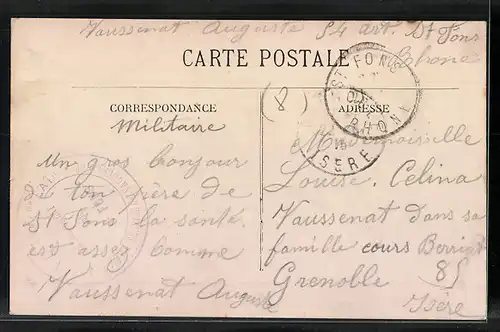 Vaussenat Auguste 54 art. St Fons
Rhone
CARTE POSTALE
CORRESPONDANCE
Militaire
ADRESSE
(8)
ST FONS
RHONE
ISERE
Un gros bonjour
de ton frère de
St Fons la santé
est assez bonne
Vaussenat Auguste
Mademoiselle
Louise, Celina
Vaussenat dans sa
famille cours Berriat
85
Grenoble
Isère